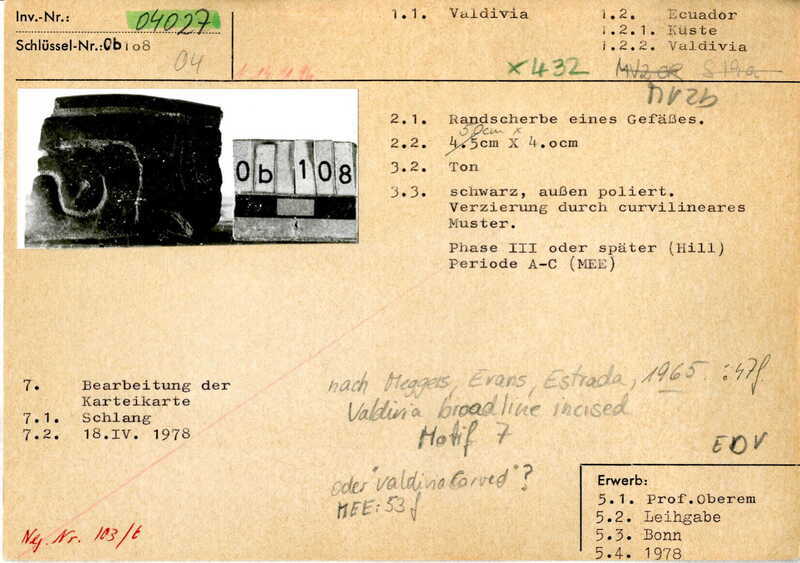 Inv.-Nr.: 04027
Schlüssel-Nr.: Ob 108
04
1.1. Valdivia
1.2. Ecuador
1.2.1. Küste
1.2.2. Valdivia
x432
MV2b
Ob 108
2.1. Randscherbe eines Gefäßes.
5,0cm x
2.2. 4.5cm X 4.0cm
3.2. Ton
3.3. schwarz, außen poliert.
Verzierung durch curvilineares
Muster.
Phase III oder später (Hill)
Periode A-C (MEE)
7. Bearbeitung der
Karteikarte
7.1. Schlang
7.2. 18.IV. 1978
nach Meggers, Evans, Estrada, 1965 :47f
Valdivia broadline incised
Motif 7
EDV
oder "Valdivia Carved"?
MEE: 53f
Neg. Nr. 103/E
Erwerb:
5.1. Prof.Oberem
5.2. Leihgabe
5.3. Bonn
5.4. 1978